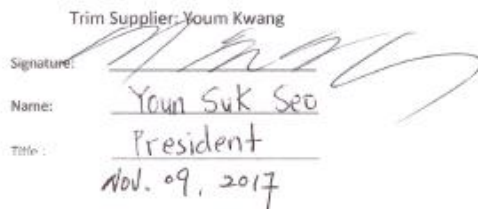 Trim Supplier: Youm Kwang
Signature:
Name: Youn Suk Seo
Title : President
Nov. 09, 2017